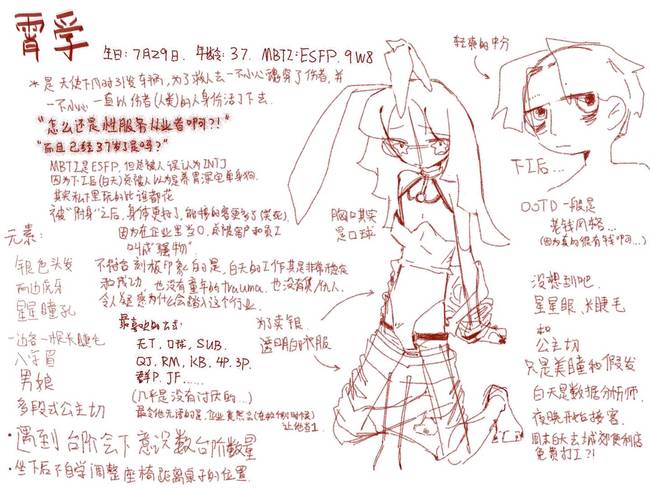 霄孚
生日：7月29日. 年龄：37. MBTI：ESFP. 9W8
*是天使下凡时引发车祸，为了救人去一不小心魂穿了伤者，并
一不小心一直以伤者(人类)的人身份活了下去.
"怎么还是性服务从业者啊?!"
"而且已经37岁了是吗?"
MBTI是ESFP，但总被人误认为INTJ
因为下工后(白天)总被人以为是
其实私下里玩的比谁都花
被"附身"之后，身体更好了，能接的客更多了(笑死).
因为在企业里当0，
叫成"猫物"
元素：
银色头发
两边虎牙
星星瞳孔
一边各一根长睫毛
八字眉
男娘
多段式公主切
不符合刻板印象的是，白天的工作其是非常稳定
和成功，也没有童年的trauma，也没有
令人疑惑为什么会踏入这个行业.
最喜欢的
无T. 口球. SUB.
QJ. RM. KB. 4P. 3P.
群P. JF......
(几乎是没有讨厌的...)
让他当1.
·遇到台阶会下意识数台阶数量
·坐下后不自觉调整座椅距离桌子的位置.
胸口其实
是口球
为了卖银，
透明白色衣服
轻爽的中分
下工后...
OOTD一般是
老钱风格...
(因为真的很有钱啊...)
没想到吧.
星星眼、长睫毛
和
公主切
只是美瞳和假发
白天是数据分析师.
夜晚形色接客.
周末白天去城郊便利店
免费打工?!